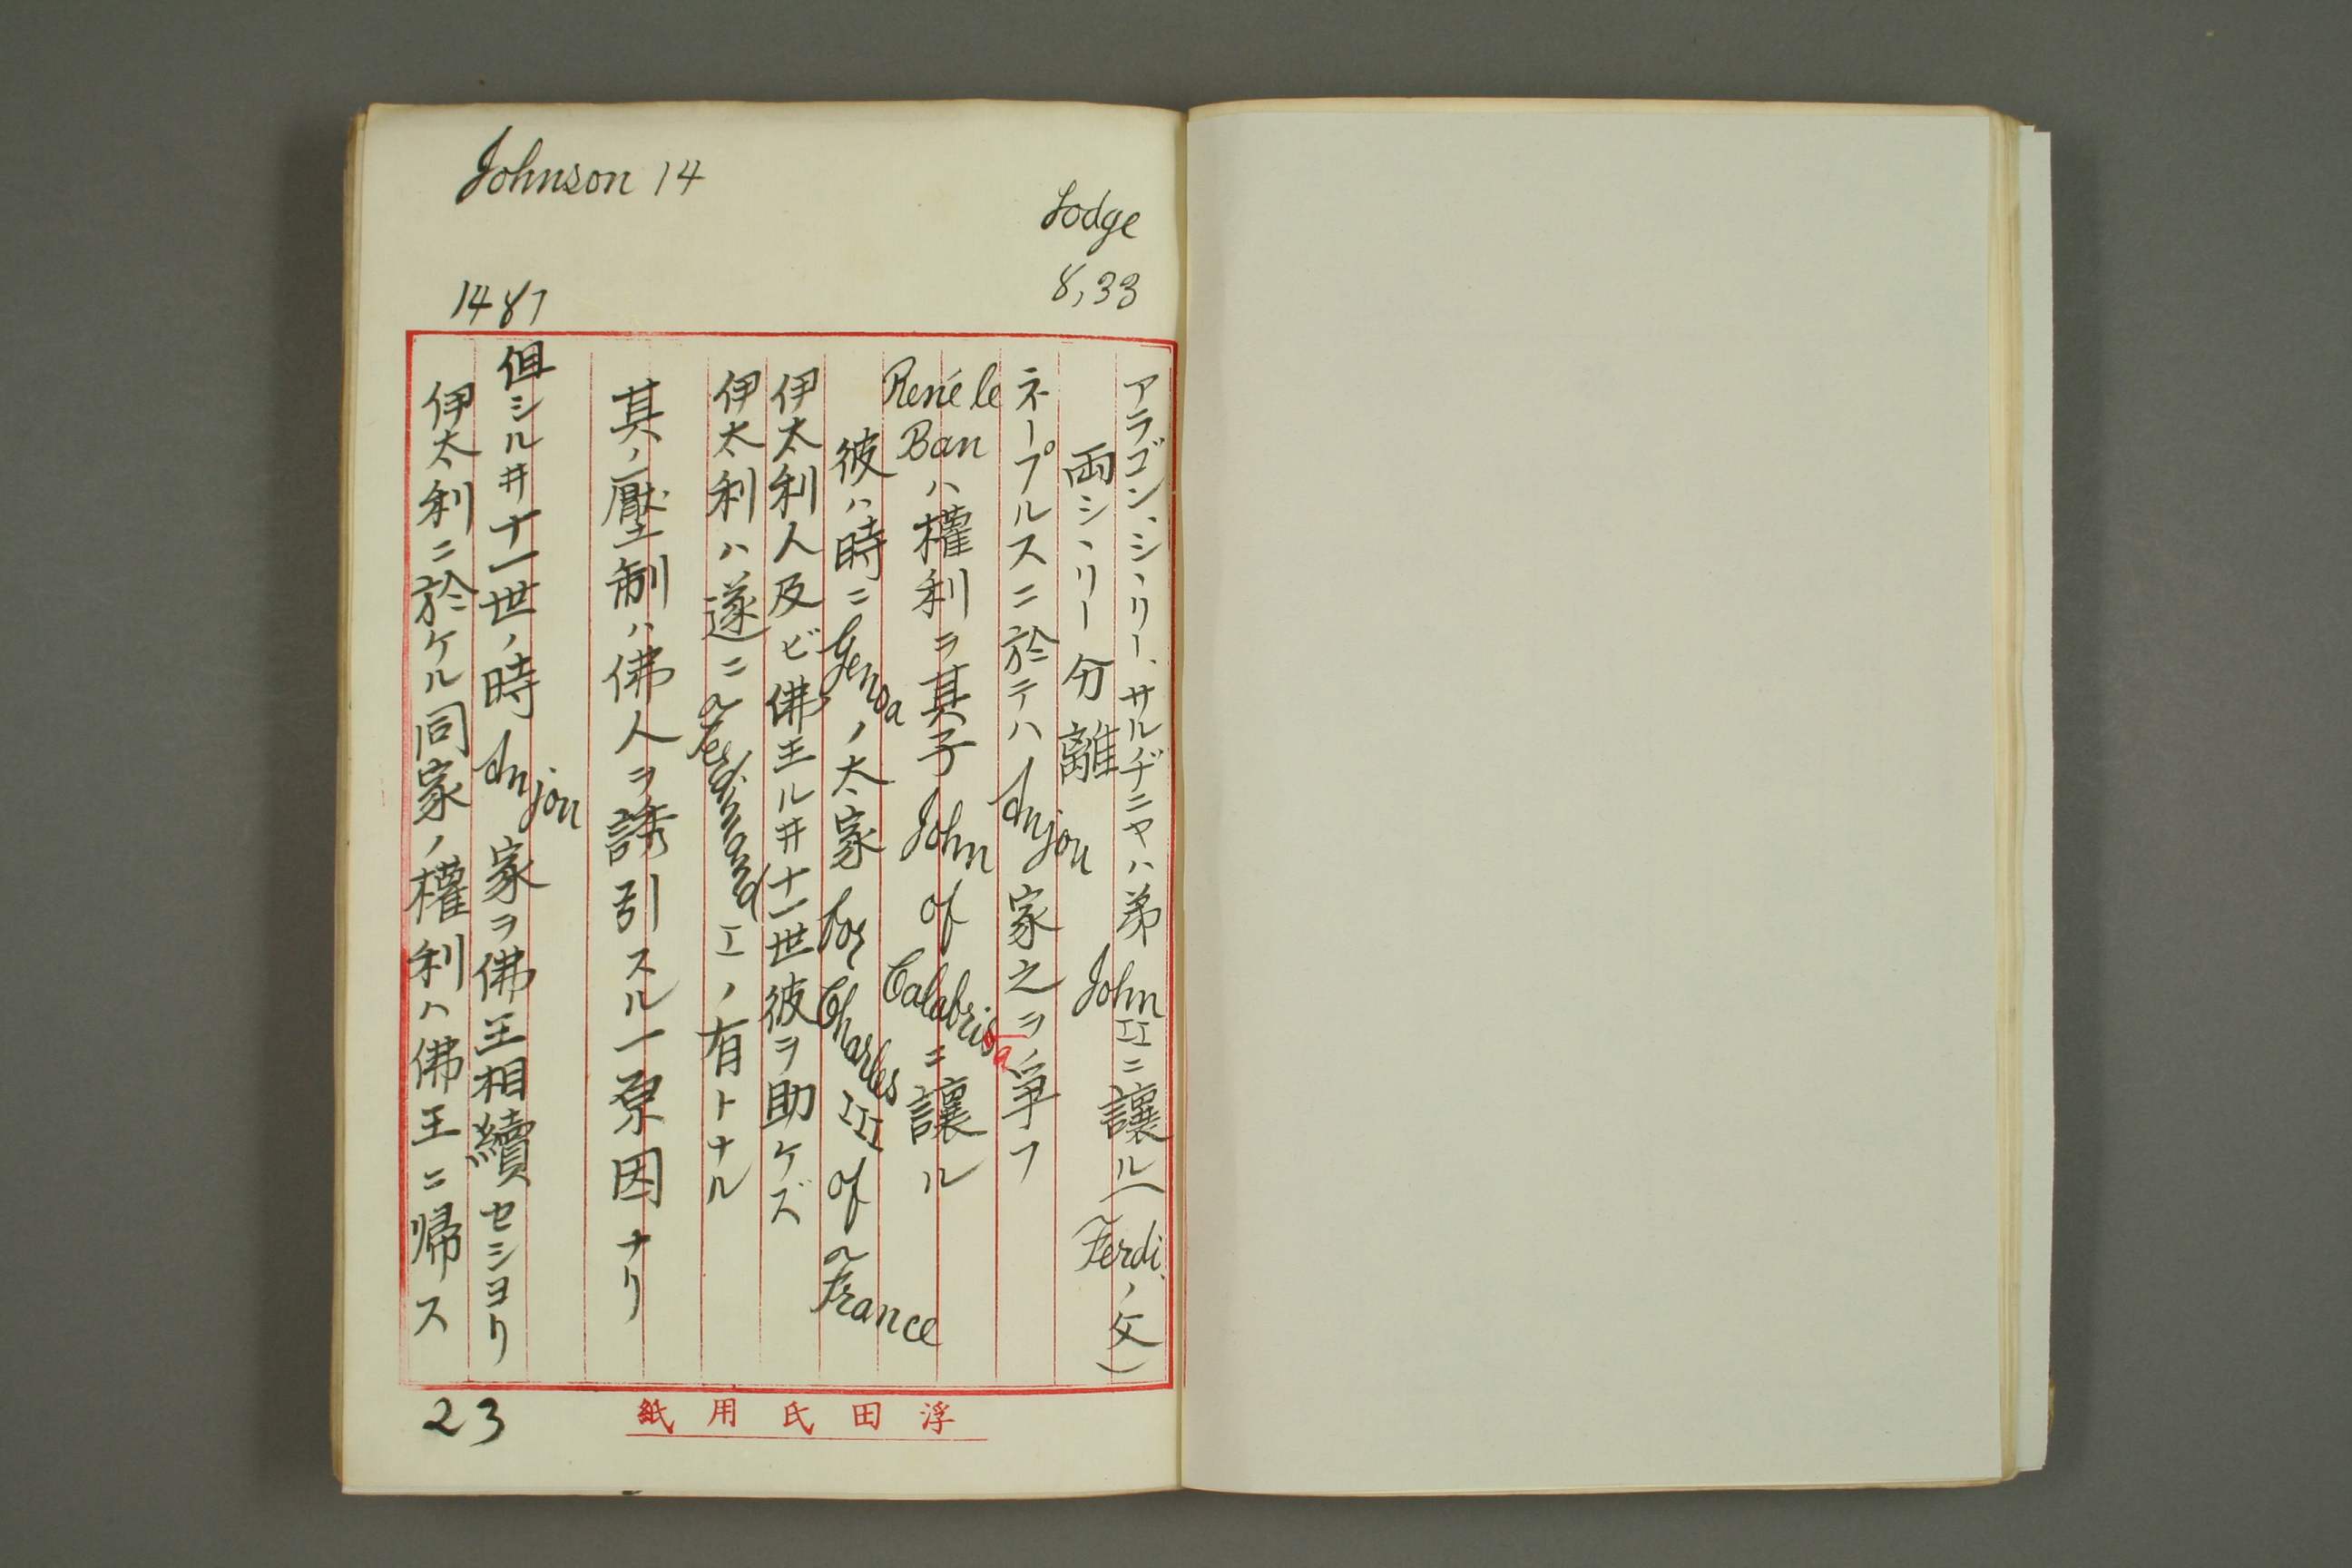 Johnson 14
Lodge
8,33
1481
アラゴン、シヽリー、サルヂニヤハ弟 John II ニ讓ル(Ferdi.ノ父)
両シヽリー分離
ネープルスニ於テハ Anjou 家之ヲ爭フ
René le Bon ハ權利ヲ其子 John of Calabria ニ讓ル
彼ハ時ニ Genoa ノ太家 for Charles VII of France
伊太利人及ビ佛王ルヰ十一世彼ヲ助ケズ
伊太利ハ遂ニ Ferdinand I ノ有トナル
其ノ壓制ハ佛人ヲ誘引スル一原因ナリ
但シルヰ十一世ノ時 Anjou 家ヲ佛王相續セシヨリ
伊太利ニ於ケル同家ノ權利ハ佛王ニ帰ス
23
浮田氏用紙